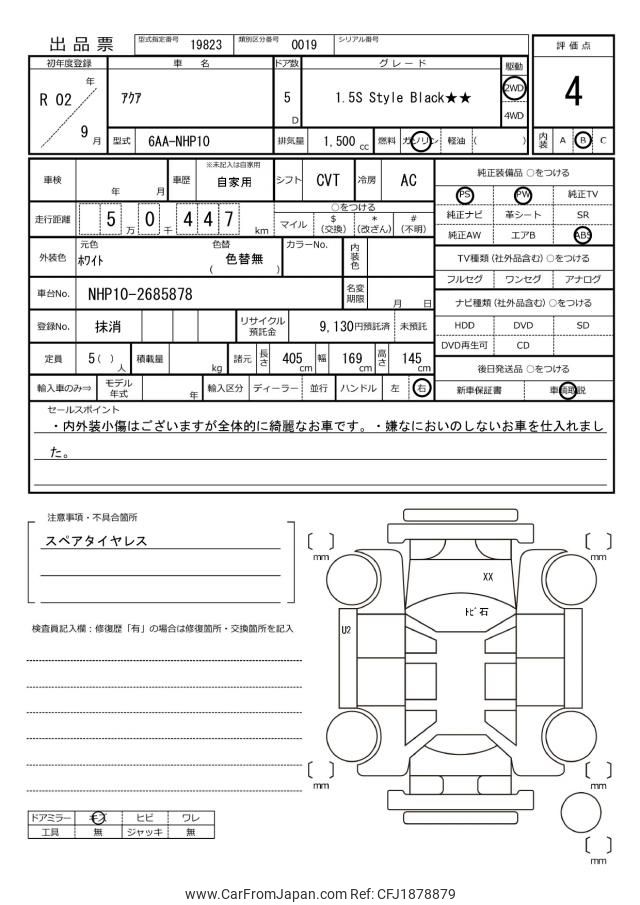 出品票
型式指定番号 19823 類別区分番号 0019 シリアル番号
初年度登録 車 名 ドア数 グレード 駆動 評価点
R 02 年 9 月
ｱｸｱ 5 D 1.5S Style Black★★ 2WD 4WD
4
型式 6AA-NHP10 排気量 1,500 cc 燃料 ガソリン 軽油 ( ) 内装 A B C
車検 年 月 車歴 ※未記入は自家用 自家用 シフト CVT 冷房 AC
走行距離 5 万 0 千 4 4 7 km ○をつける マイル $ (交換) * (改ざん) # (不明)
外装色 元色 ﾎﾜｲﾄ 色替 ( 色替無 ) カラーNo. 内装色
車台No. NHP10-2685878 名変期限 月 日
登録No. 抹消 リサイクル預託金 9,130円預託済 未預託
定員 5 ( ) 人 積載量 kg 諸元 長さ 405 cm 幅 169 cm 高さ 145 cm
輸入車のみ⇒ モデル年式 年 輸入区分 ディーラー 並行 ハンドル 左 右
純正装備品 ○をつける
PS PW 純正TV
純正ナビ 革シート SR
純正AW エアB ABS
TV種類 (社外品含む) ○をつける
フルセグ ワンセグ アナログ
ナビ種類 (社外品含む) ○をつける
HDD DVD SD
DVD再生可 CD
後日発送品 ○をつける
新車保証書 車輌取説
セールスポイント
・内外装小傷はございますが全体的に綺麗なお車です。・嫌なにおいのしないお車を仕入れまし
た。
注意事項・不具合箇所
スペアタイヤレス
検査員記入欄：修復歴「有」の場合は修復箇所・交換箇所を記入
mm
mm
XX
ﾄﾋﾞ石
U2
mm
mm
mm
ドアミラー キズ ヒビ ワレ
工具 無 ジャッキ 無
www.CarFromJapan.com Ref: CFJ1878879